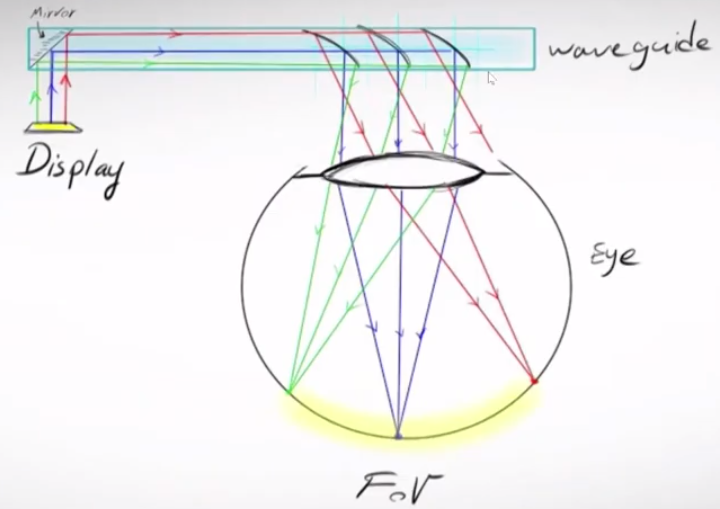 Mirror
waveguide
Display
Eye
FoV